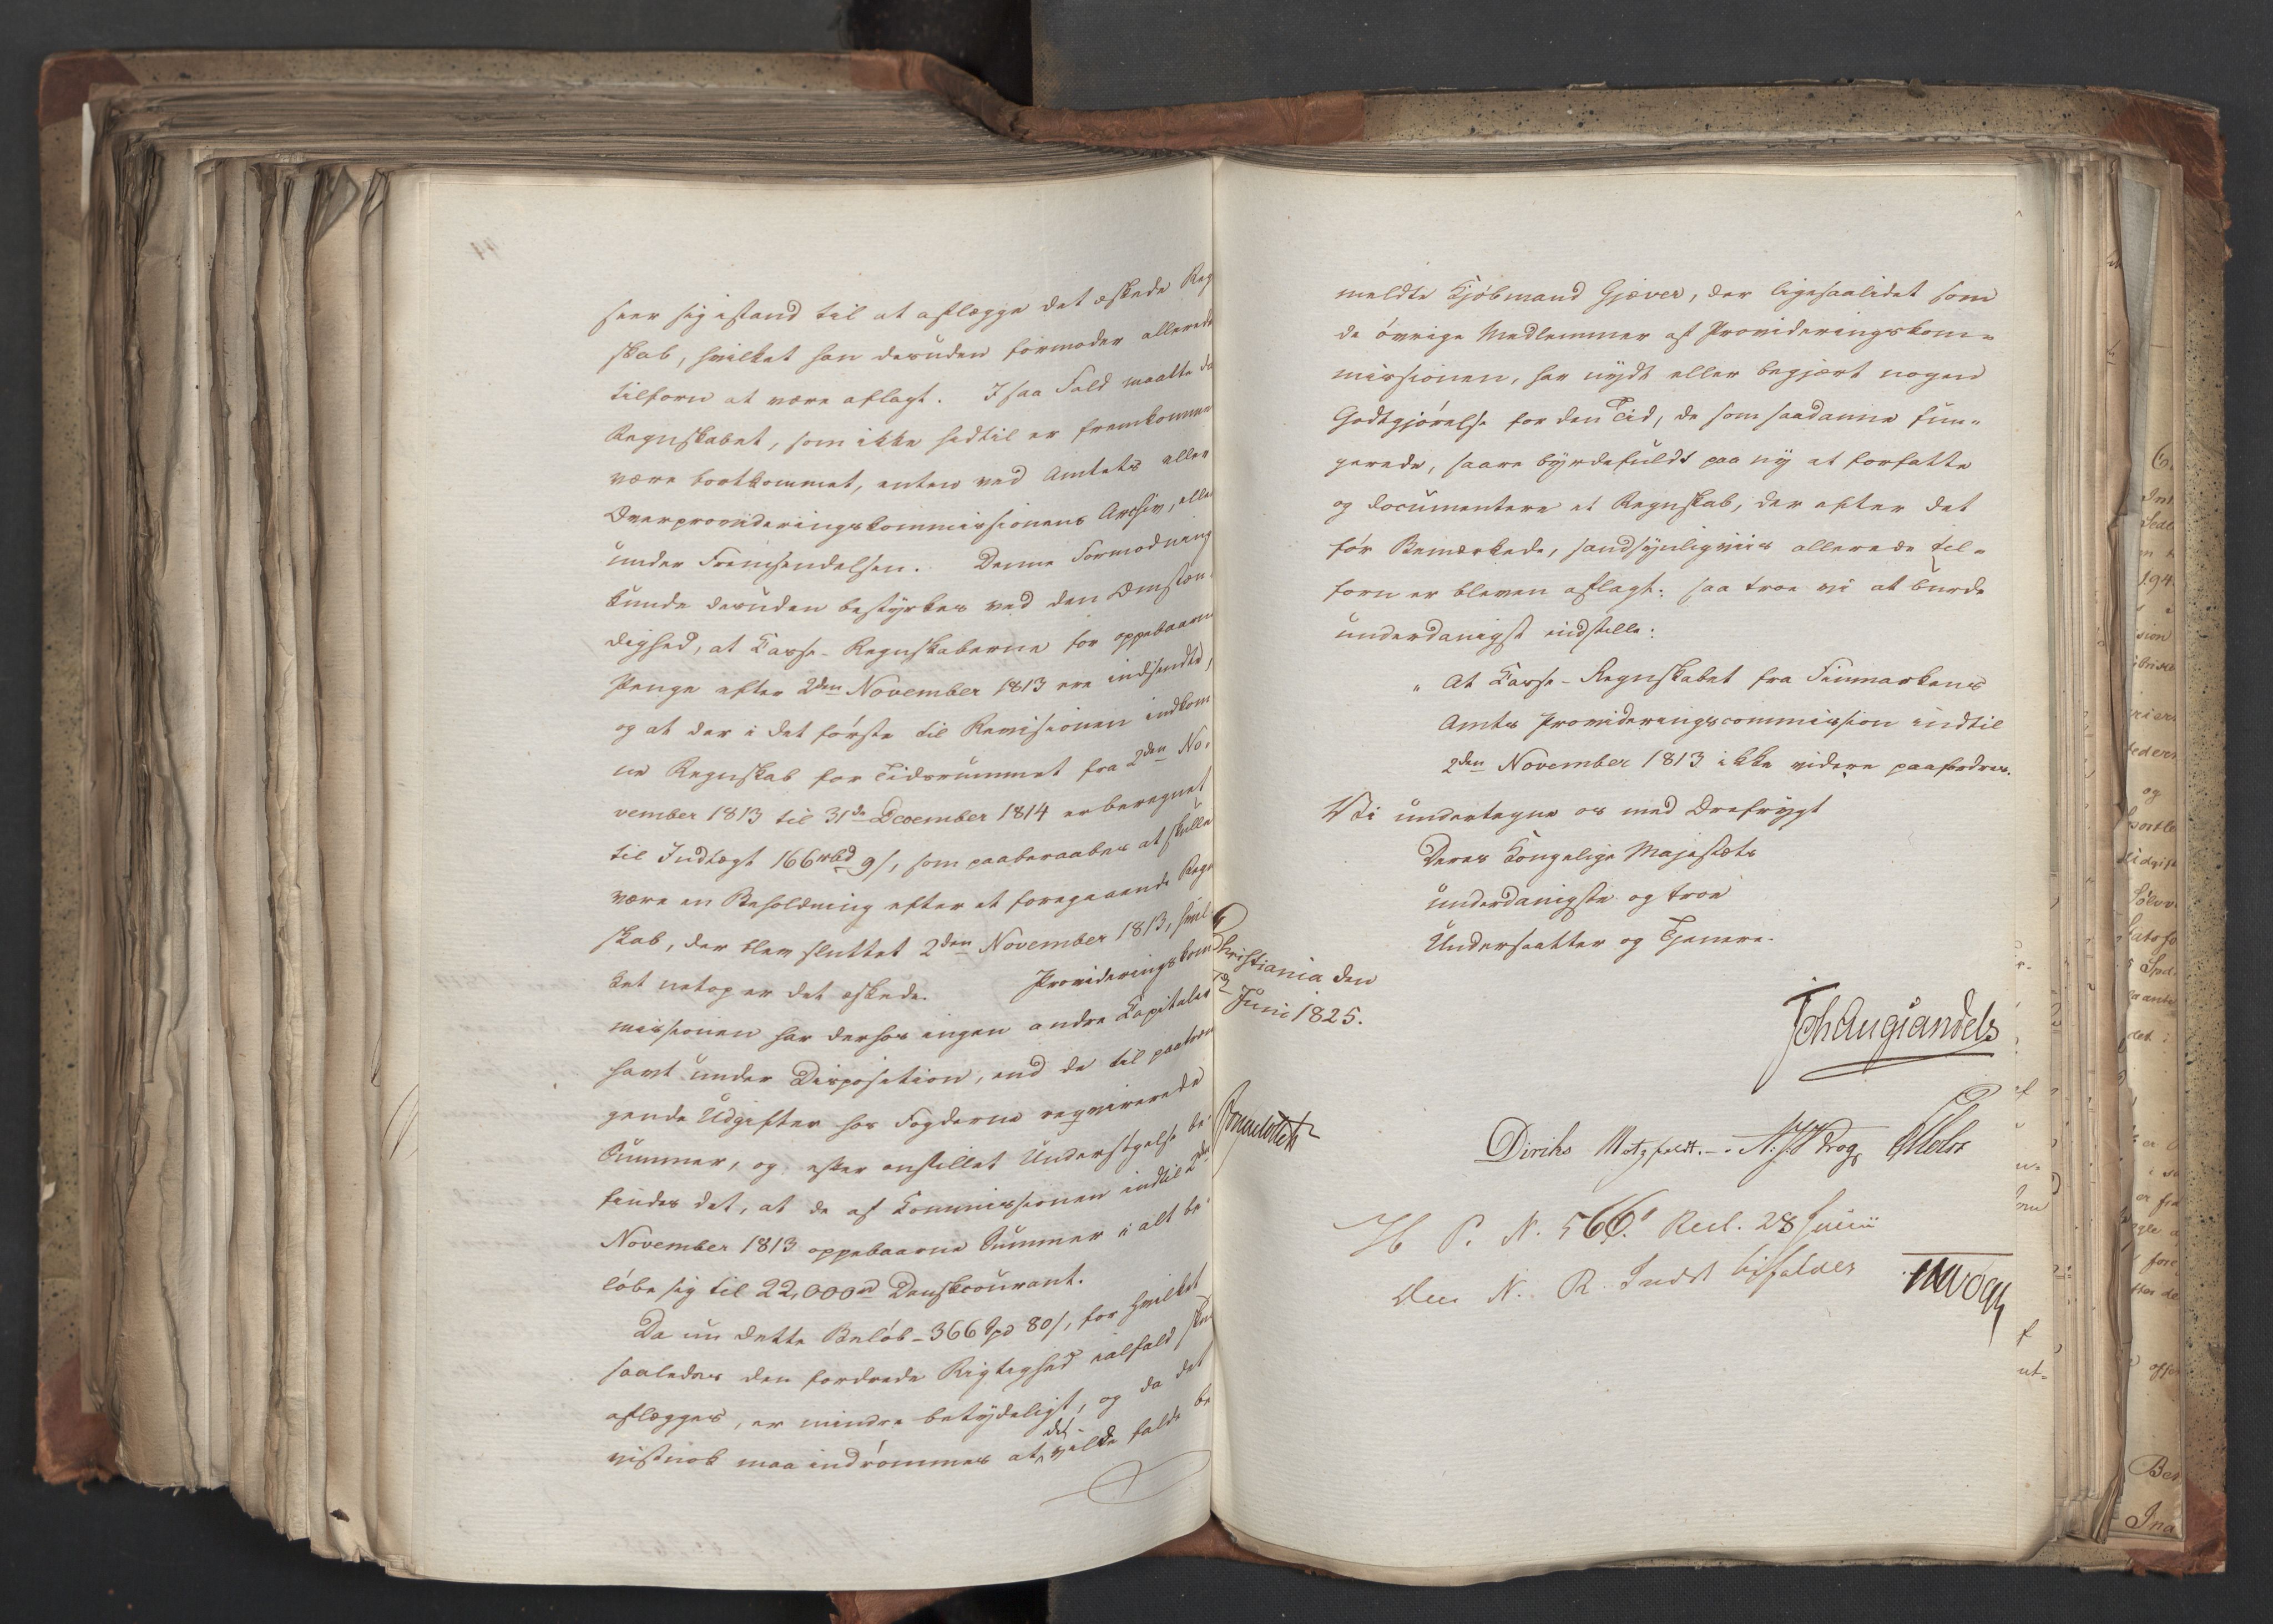 seer sig istand til at aflægge det æskede Reg
skab, hvilket han desuden formoder allerede
tilforn at være aflagt. I saa Fald maatte da
Regnskabet, som ikke hidtil er fremkommen
være bortkommet, enten ved Amtets eller
Overprovideringskommissionens Archiv, eller
under Fremsendelsen. Denne Formodning
kunde desuden bestyrkes ved den Omstæn-
dighed, at Casse-Regnskaberne for oppebaarne
Penge efter 2den November 1813 ere indsendte,
og at der i det første til Revisionen indkom
ne Regnskab for Tidsrummet fra 2den No-
vember 1813 til 31de December 1814 er beregnet
til Indtægt 166 rbd 9 s, som paaberaabes at skulle
være en Beholdning efter et foregaaende Regn
skab, der blev sluttet 2den November 1813, hvil
ket netop er det æskede. Provideringskom
missionen har derhos ingen andre Capitaler
havt under Disposition, end de til paatræn
gende Udgifter hos Fogderne reqvirerede
Summer, og efter anstillet Undersøgelse be
findes det, at de af Commissionen indtil 2de
November 1813 oppebaarne Summer i alt be
løbe sig til 22,000 rd Danskcourant.
Da nu dette Beløb - 366 Spd 80 s, for hvilket
saaledes den fordrede Rigtighed ialfald skul
aflægges, er mindre betydeligt, og da det
vistnok maa indrømmes at det vilde falde be
meldte Kjøbmand Gjæver, der ligesaalidet som
de øvrige Medlemmer af Provideringskom-
missionen, har nydt eller begjært nogen
Godtgjørelse for den Tid, de som saadanne fun-
gerede, saare byrdefuldt paa ny at forfatte
og documentere et Regnskab, der efter det
før Bemærkede, sandsynligviis allerede til-
forn er bleven aflagt: saa troe vi at burde
underdanigst indstille:
"At Casse-Regnskabet fra Finmarkens
Amts Provideringscommission indtil
2den November 1813 ikke videre paafordres.
Vi undertegne os med Ærefrygt
Deres Kongelige Majestæts
underdanigste og troe
Undersaatter og Tjenere.
Christiania den
Juni 1825.
Joh Aug Sandels
Sommerfeldt
Diriks Motzfeldt. - N. J. Krog
H P. N. 566. Resl. 28 Junii
Den N. R. Indst bifaldes